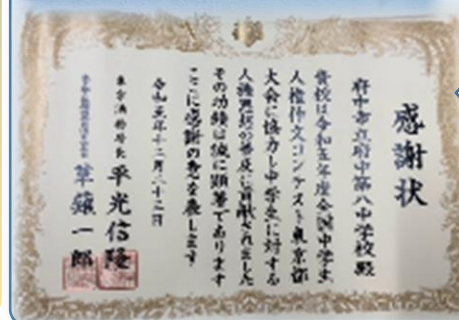 感謝状
府中市立府中第八中学校殿
貴校は令和五年度全国中学生
人権作文コンテスト東京都
大会に協力し中学生に対する
人権思想の普及に貢献されました
その功績は誠に顕著であります
ここに感謝の意を表します
令和五年十二月二十二日
東京法務局長 平光信隆
一郎